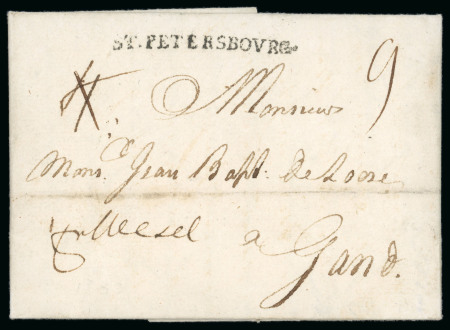 ST. PETERSBOVRG.
Monsieur 9
Mons. Jean Bapt. De Loose
Wesel a Gand.